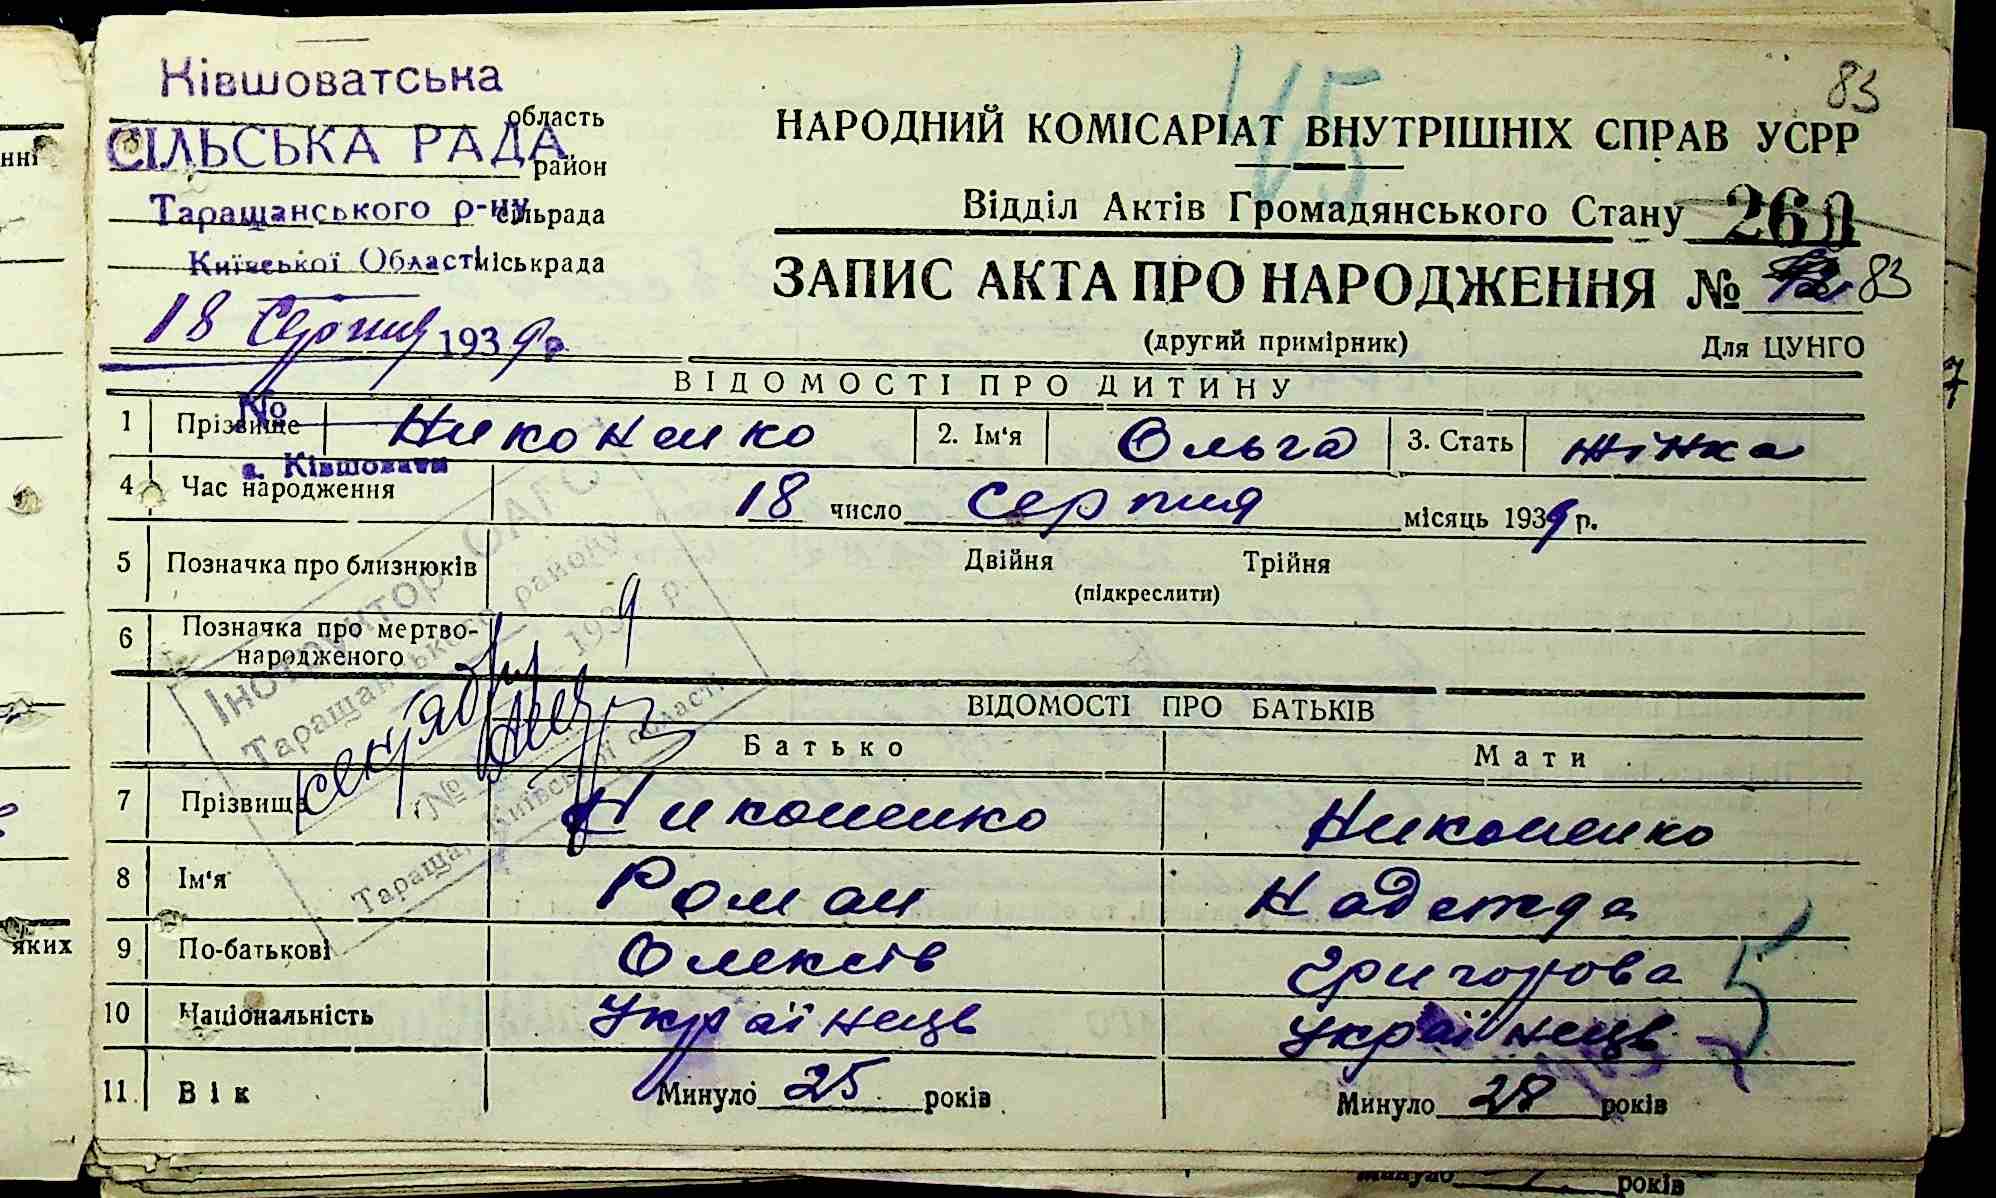 83
Ківшоватська
область
СІЛЬСЬКА РАДА
район
Таращанського р-ну
сільрада
Київської Області
міськрада
18 Серпня 1939 р
НАРОДНИЙ КОМІСАРІАТ ВНУТРІШНІХ СПРАВ УСРР
Відділ Актів Громадянського Стану 260
ЗАПИС АКТА ПРО НАРОДЖЕННЯ № 83
(другий примірник) Для ЦУНГО
ВІДОМОСТІ ПРО ДИТИНУ
№
1 Прізвище Никоненко 2. Ім'я Ольга 3. Стать жінка
с. Ківшовати
4 Час народження 18 число серпня місяць 1939 р.
5 Позначка про близнюків Двійня Трійня
(підкреслити)
6 Позначка про мертво-
народженого
Інструктор ОАГС
Таращанського району
Київської області
1939 р.
№
Тараща,
ВІДОМОСТІ ПРО БАТЬКІВ
Батько Мати
7 Прізвище Никоненко Никоненко
8 Ім'я Роман Надежда
9 По-батькові Олексів Григорова
10 Національність Українець Українець
11. Вік Минуло 25 років Минуло 28 років
5
яких
Минуло років